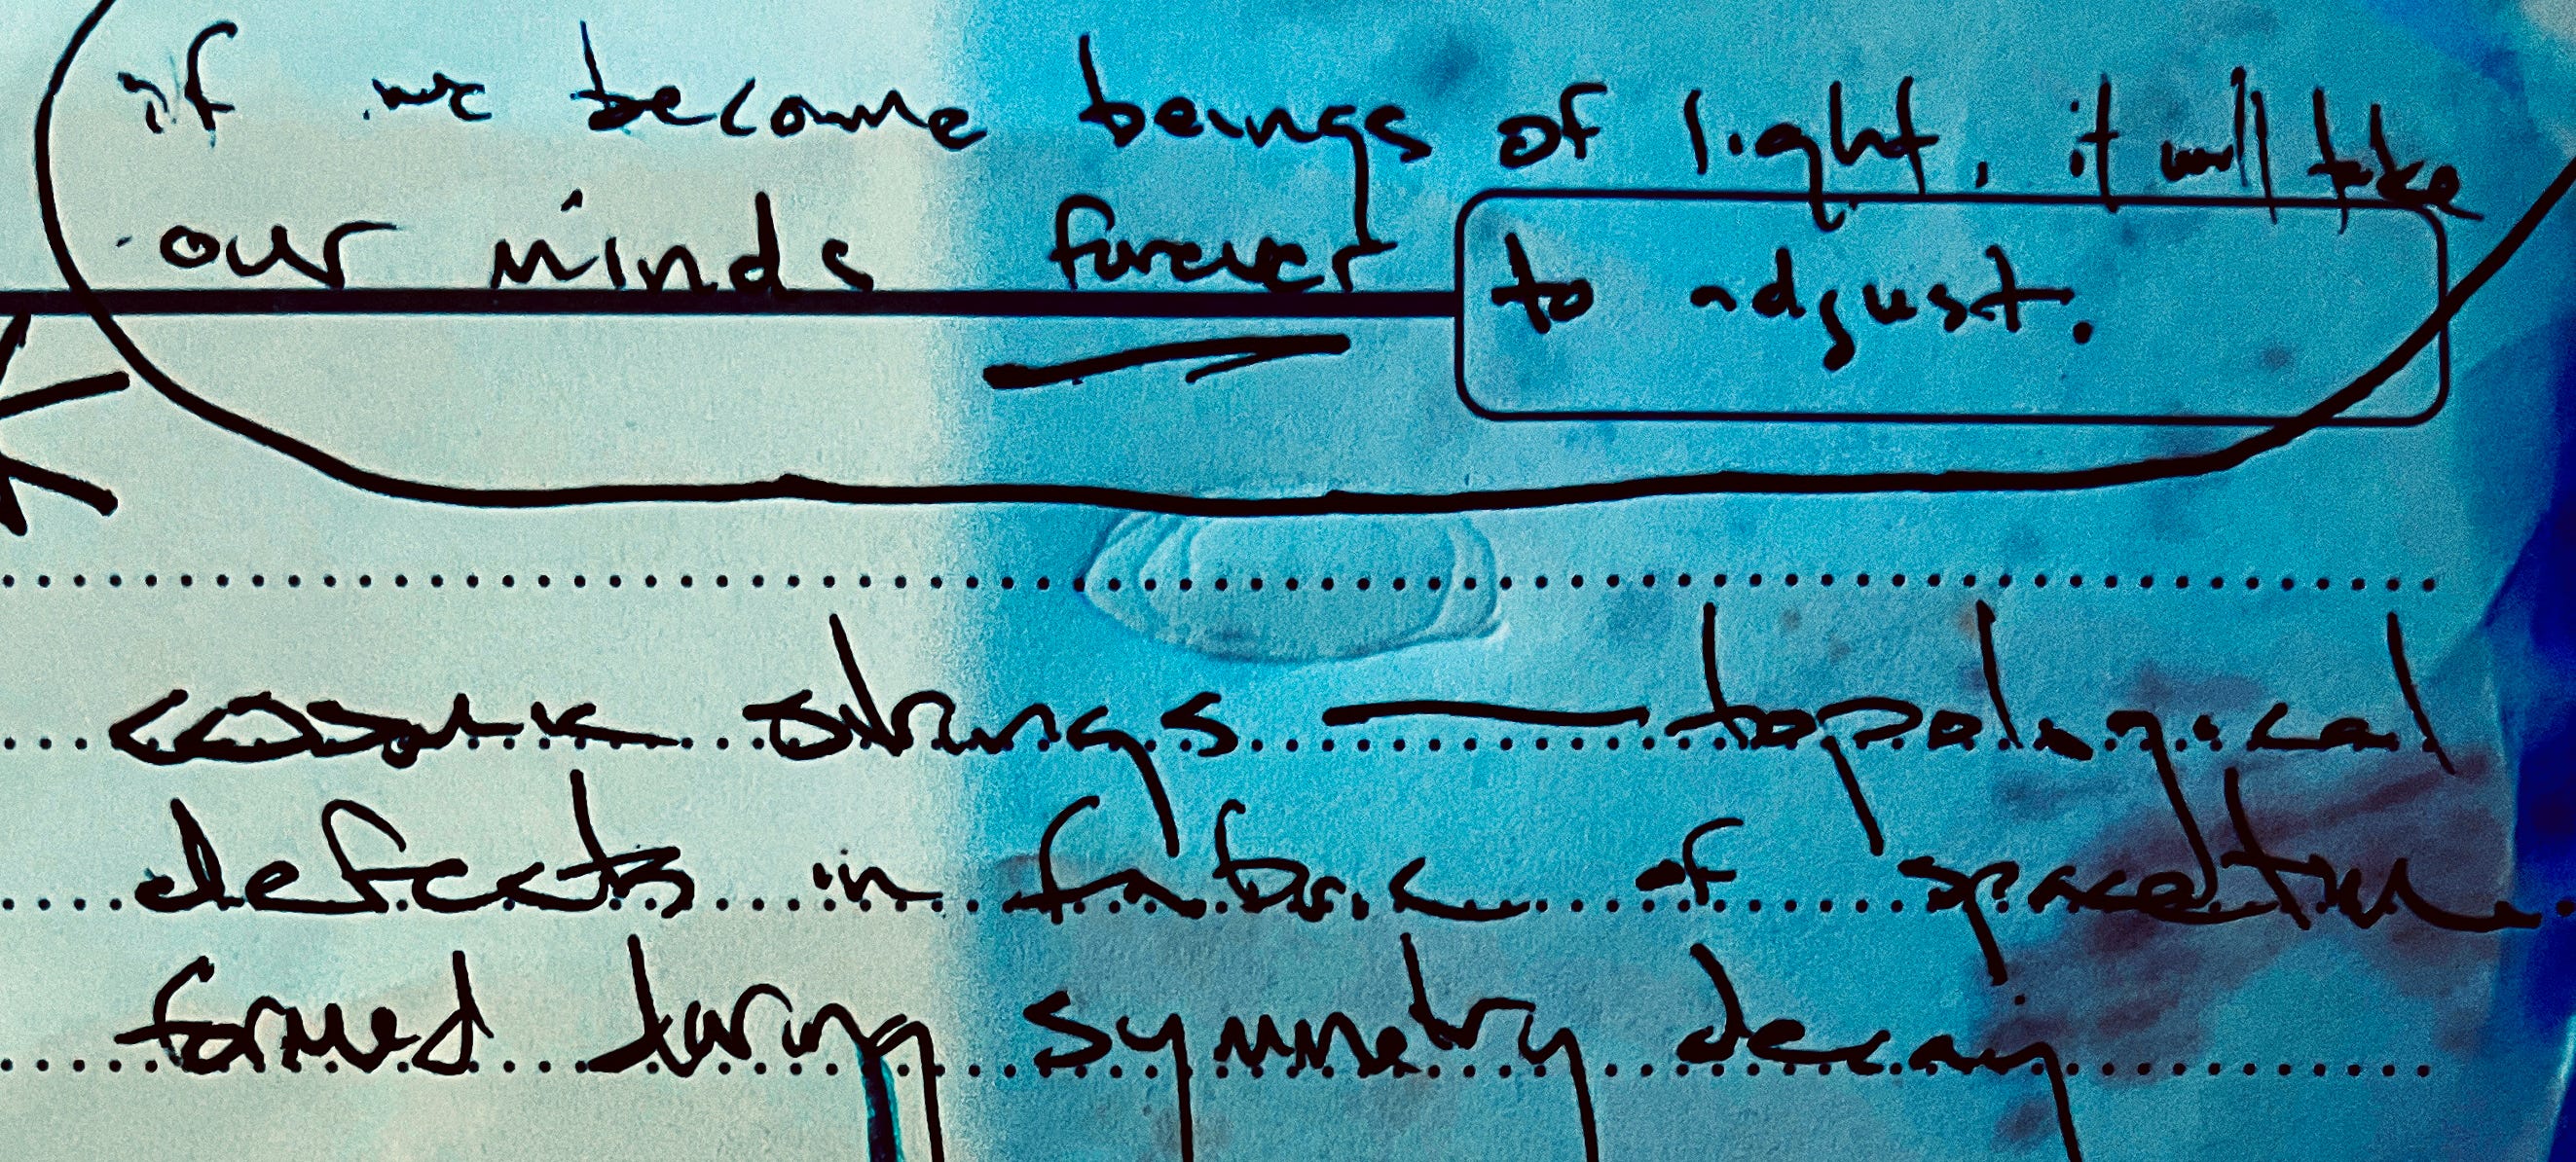 if we become beings of light, it will take
our minds forever to adjust.
cosmic strings — topological
defects in fabric of spacetime
formed during symmetry decay